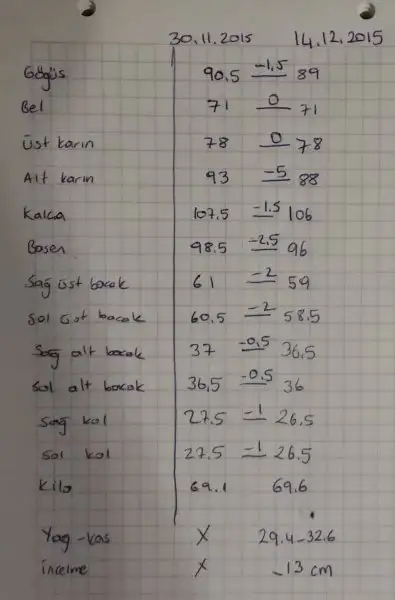 30.11.2015 14.12.2015
Göğüs 90.5 -1,5 89
Bel 71 0 71
Üst karın 78 0 78
Alt karın 93 -5 88
Kalça 107.5 -1.5 106
Basen 98.5 -2,5 96
Sağ üst bacak 61 -2 59
Sol üst bacak 60.5 -2 58.5
Sağ alt bacak 37 -0,5 36,5
Sol alt bacak 36,5 -0,5 36
Sağ kol 27.5 -1 26,5
Sol kol 27.5 -1 26.5
Kilo 69.1 69.6
Yağ-kas X 29.4-32.6
incelme X -13 cm